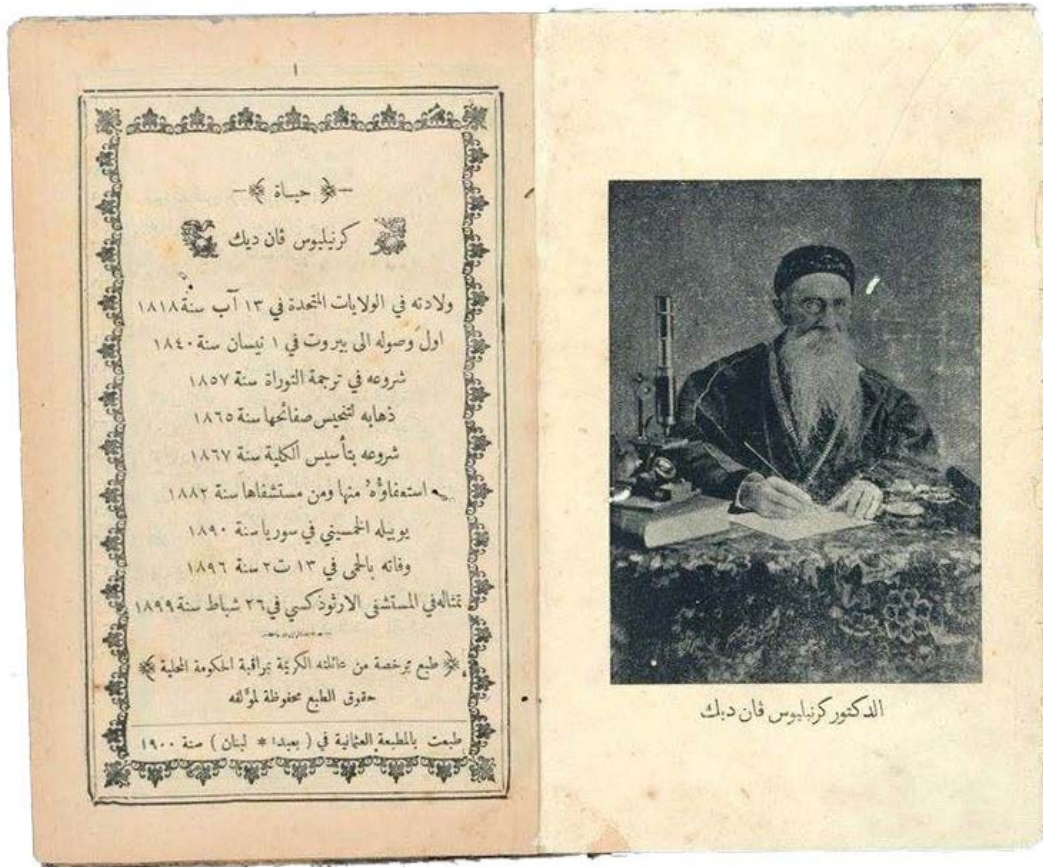 ١
حياة
كرنيليوس ڤان ديك
ولادته في الولايات المتحدة في ١٣ آب سنة ١٨١٨
اول وصوله الى بيروت في ١ نيسان سنة ١٨٤٠
شروعه في ترجمة التوراة سنة ١٨٥٧
ذهابه لتنحيس صفائحها سنة ١٨٦٥
شروعه بتأسيس الكلية سنة ١٨٦٧
استعفاؤهُ منها ومن مستشفاها سنة ١٨٨٢
يوبيله الخمسيني في سوريا سنة ١٨٩٠
وفاته بالحمى في ١٣ ت٢ سنة ١٨٩٦
تمثاله في المستشفى الارثوذكسي في ٢٦ شباط سنة ١٨٩٩
طبع برخصة من عائلته الكريمة بمراقبة الحكومة المحلية
حقوق الطبع محفوظة لمؤلفه
طبعت بالمطبعة العثمانية في ( بعبدا * لبنان ) سنة ١٩٠٠
الدكتور كرنيليوس ڤان ديك